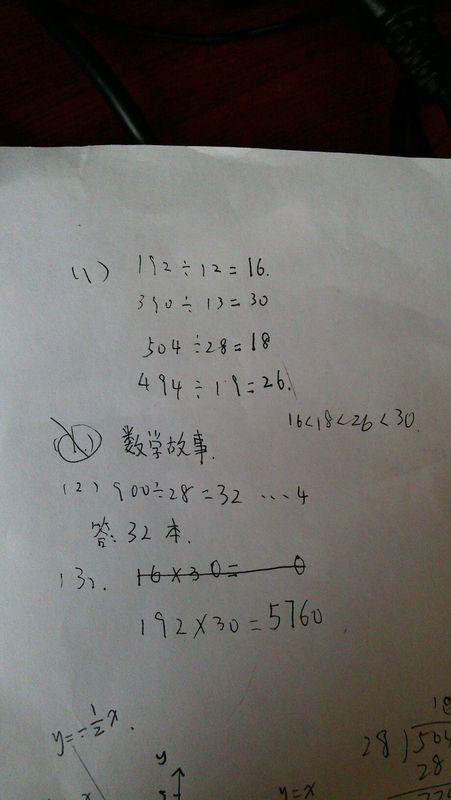 (1) 192÷12=16.
390÷13=30
504÷28=18
494÷19=26.
16<18<26<30.
数学故事.
(2) 900÷28=32 ···4
答: 32 本.
(3). 16×30= 0
192×30=5760
y=-1/2x.
y
y=x
18
28)504
28